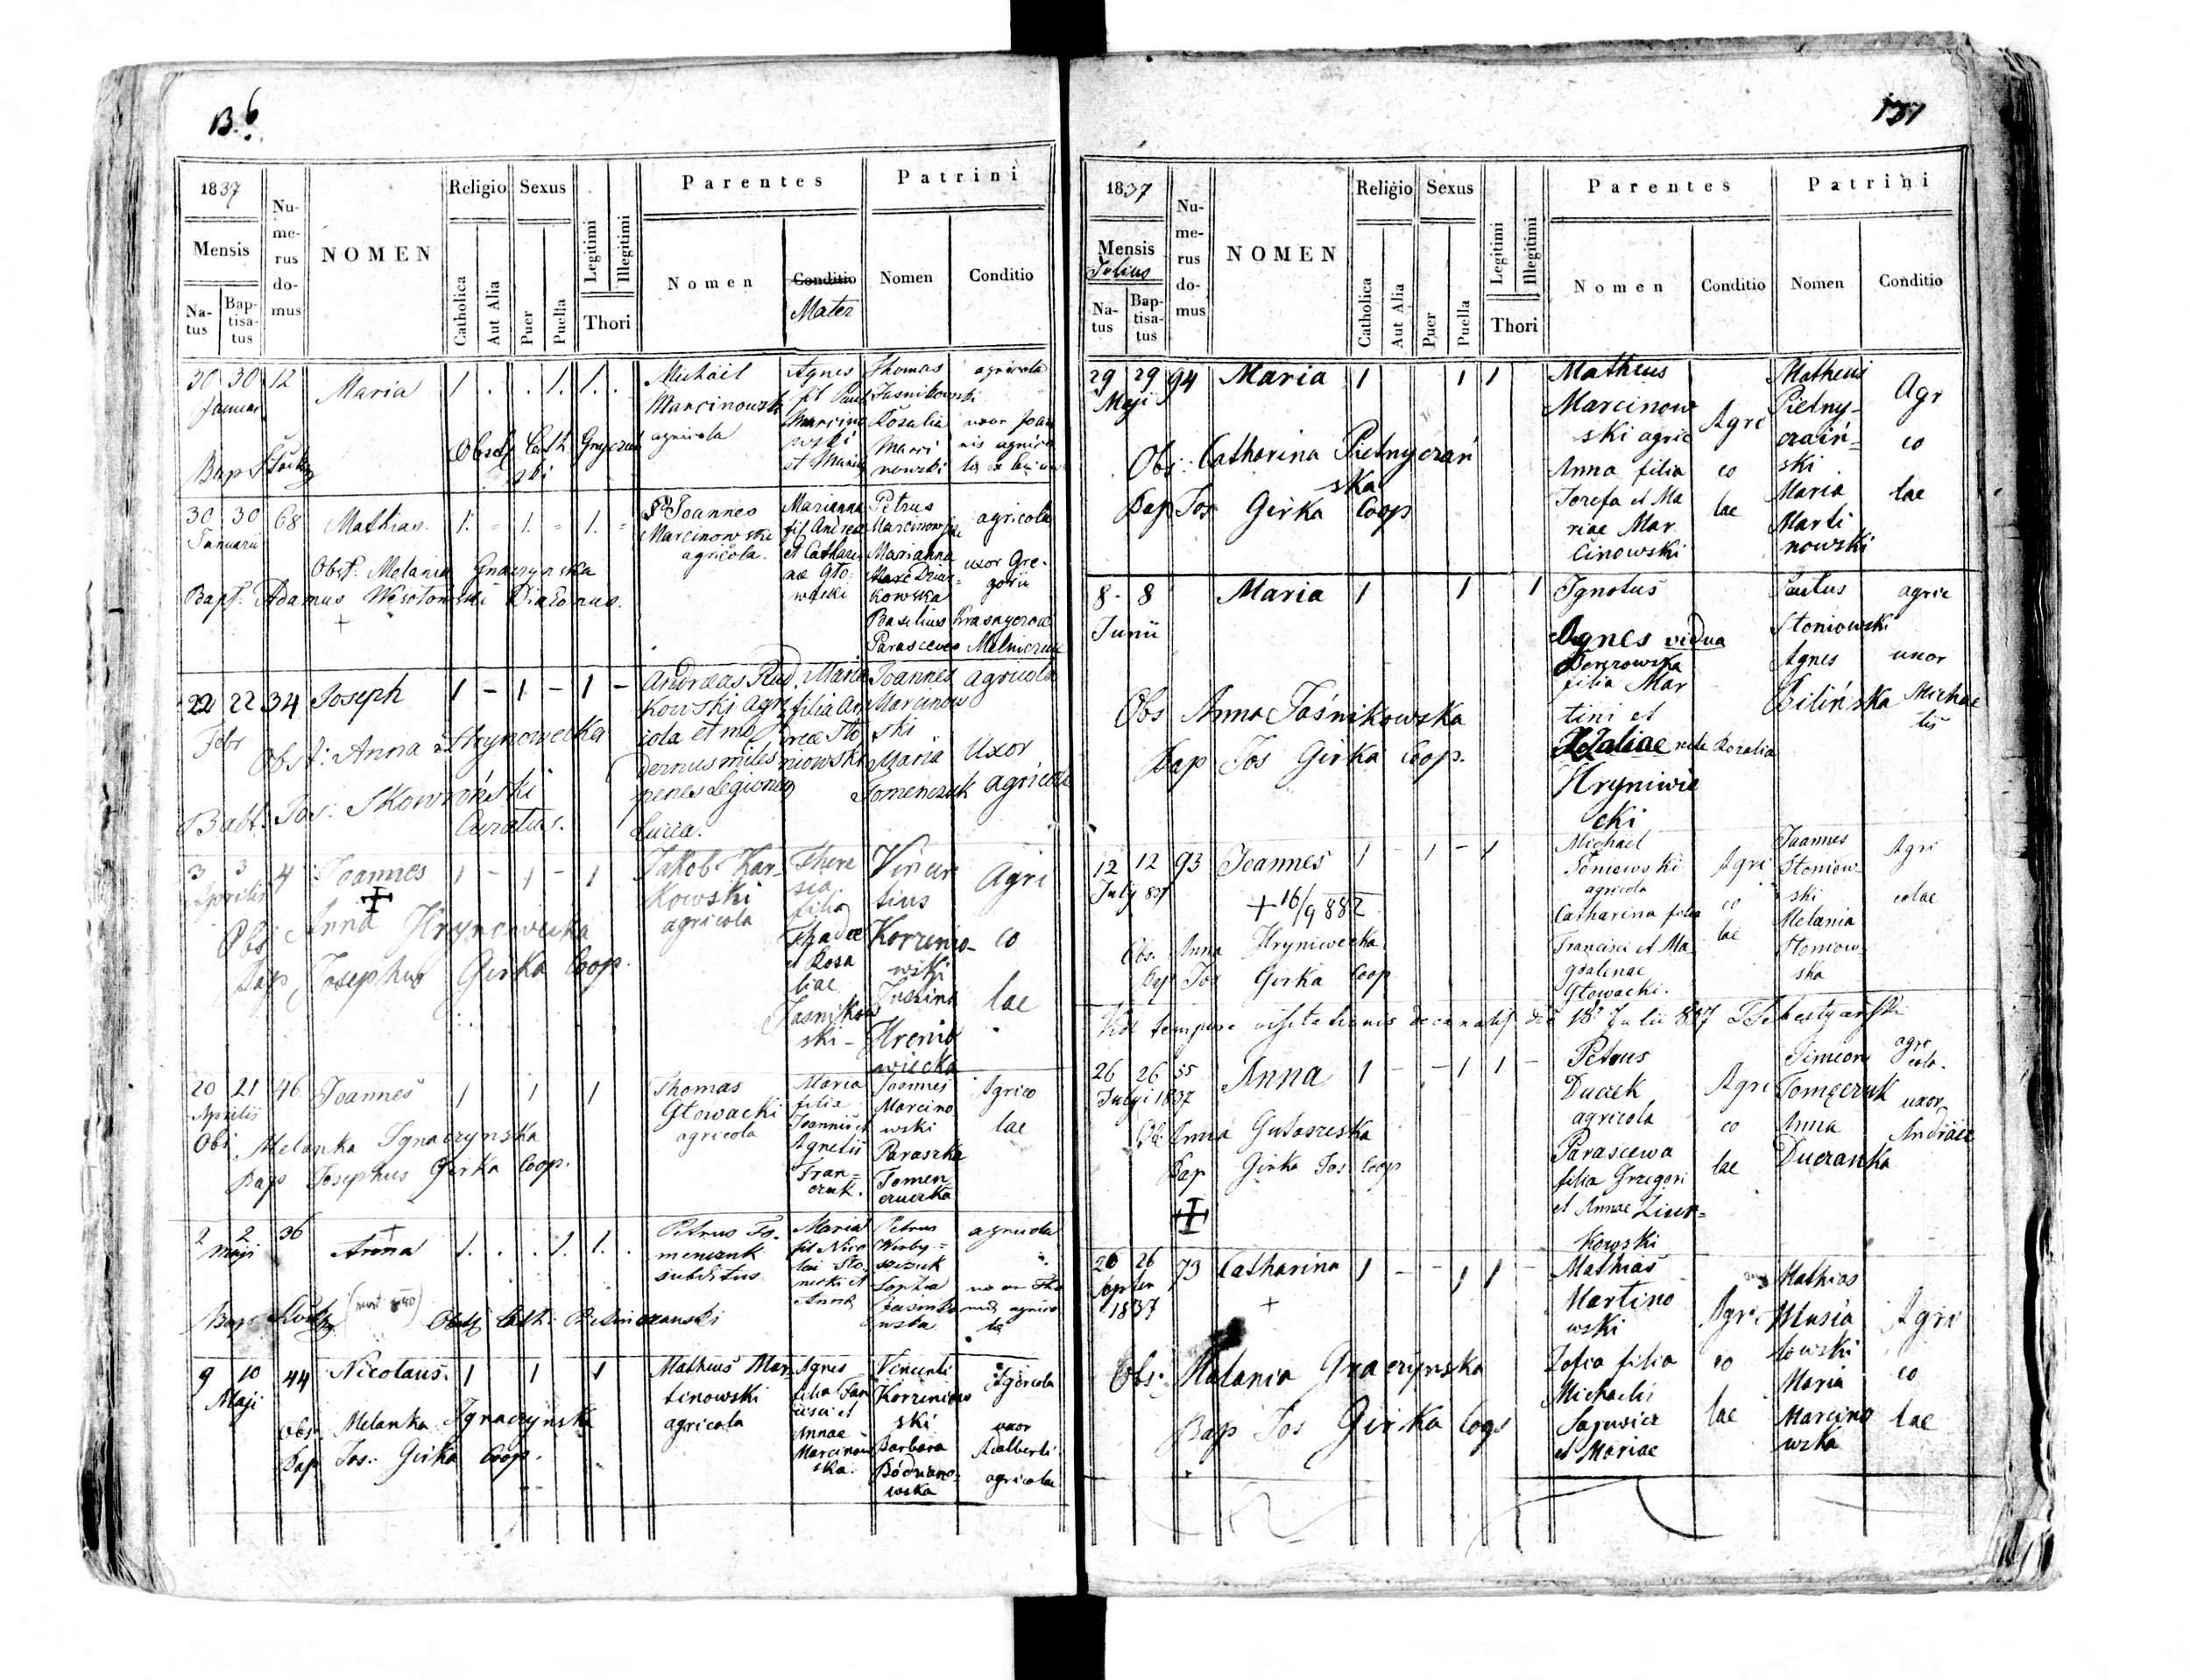 B. 6
1837
Mensis
Na-
tus
Bap-
tisa-
tus
Nu-
me-
rus
do-
mus
NOMEN
Religio
Catholica
Aut Alia
Sexus
Puer
Puella
Legitimi
Illegitimi
Thori
Parentes
Nomen
Conditio
Mater
Patrini
Nomen
Conditio
30 30 12 Maria 1 . . 1. 1. .
Januar
Michael
Marcinowski
agricola
Agnes
fil Pauli
Marcino
wski
et Maria
Thomas
Jasnikowski
Rosalia
Marci
nowski
agricola
uxor Joan
nis agrico
Obst Cath
Bap
30 30 68 Mathias. 1. - 1. - 1. -
Januarii
Obst: Melania Gnaczynska
Bapt. Adamus Diaconus.
+
Joannes
Marcinowski
agricola.
Marianna
fil Andrea
et Cathari
nae Gło-
wacki
Petrus
Marcinowski
Marianna
kowska
Basilius
Parasceve
agricola
uxor Gre-
gorii
Krasnyczow
Melniczuk
22 22 34 Joseph 1 - 1 - 1 -
Febr
Obst: Anna Hrynowiecka
Babt. Jos. Skowroński
Curatus.
Andreas Rud
kowski agri
cola et mo
dernus miles
penes Legionem
Maria
filia An
dreae Sto
niowski
Joannes
Marcinow
ski
Maria
Tomenczuk
agricola
Uxor
agricola
3 3 4 Joannes 1 - 1 - 1
Aprilis
Obs Anna Hryncowiecka
Bap Josephus Girka Coop.
Jakob Kar-
kowski
agricola
There
sia
filia
Thadee
et Rosa
liae
Jasnikow
ski-
Vincen
tius
Korzenio-
wski
Justina
Hrenio
wiecka
Agri
co
lae
20 21 46 Joannes 1 1 1
Aprilis
Obs. Melanka Ignaczynska
Bap Josephus Girka Coop.
Thomas
Głowacki
agricola
Maria
filia
Joannis et
Agnetis
Fran-
czuk.
Joannes
Marcino
wski
Paraszka
Tomen
czuczka
Agrico
lae
2 2 36 Anna 1. . . 1. 1. .
Maji
+
Petrus To-
menczuk
subditus
Maria
fil Nico
lai Sto-
necki et
Anna
Petrus
Sophia
agricola
9 10 44 Nicolaus. 1 1 1
Maji
Obs. Melanka Ignaczynska
Bap Jos. Girka Coop.
Matheus Mar
tinowski
agricola
Agnes
filia Fran
cisci et
Annae
Marcinow
ska.
Vincenti
Korzenio
ski
Barbara
wska
Agricola
uxor
Adalberti
agricolae
137
1837
Mensis
Julius
Na-
tus
Bap-
tisa-
tus
Nu-
me-
rus
do-
mus
NOMEN
Religio
Catholica
Aut Alia
Sexus
Puer
Puella
Legitimi
Illegitimi
Thori
Parentes
Nomen
Conditio
Patrini
Nomen
Conditio
29 29 94 Maria 1 1 1
Maji
Obs: Catharina Pietnyczań
ska
Bap Jos Girka Coop
Matheus
Marcinow
ski agric
Anna filia
Jozefa et Ma
riae Mar
cinowski
Agri
co
lae
Matheus
Pietny-
czań-
ski
Maria
Marti
nowski
Agr
co
lae
8. 8 Maria 1 1 1
Junii
Obs Anna Jaśnikowska
Bap Jos Girka Coop.
Ignotus
Agnes vidua
filia Mar
tini et
Rosalia
Hryniwie
cki
Paulus
Stoniowski
Agnes
Bilińska
agric
uxor
Michae
lis
12 12 93 Joannes 1 - 1 - 1
July 837
+ 16/9 882
Obs. Anna Hryniwecka
Bap Jos Girka Coop
Michael
Stoniowski
agricola
Catharina filia
Francisci et Ma
gdalenae
Głowacki.
Agri
co
lae
Joannes
Stoniow-
ski
Melania
Stoniow-
ska
Agri
colae
Vidi tempore visitationis decanalis die 18 Julii 837
26 26 55 Anna 1 - - 1 1 -
Julyi 1837
Ob. Anna
Bap Girka Jos Coop
Petrus
Duczek
agricola
Parascewa
filia Grzegori
et Annae Ziur-
kowski
Agri
co
lae
Simeon
Tomęczuk
Anna
Duczanka
agri
cola.
uxor
Andreae
26 26 73 Catharina 1 - - 1 1 -
Septem
1837
+
Obs: Malania Gnaczynska
Bap Jos Girka Coop
Mathias
Martino
wski
Zofia filia
Michaelis
et Mariae
Agri
co
lae
Mathias
Musia
łowski
Maria
Marcino
wska
Agri
co
lae